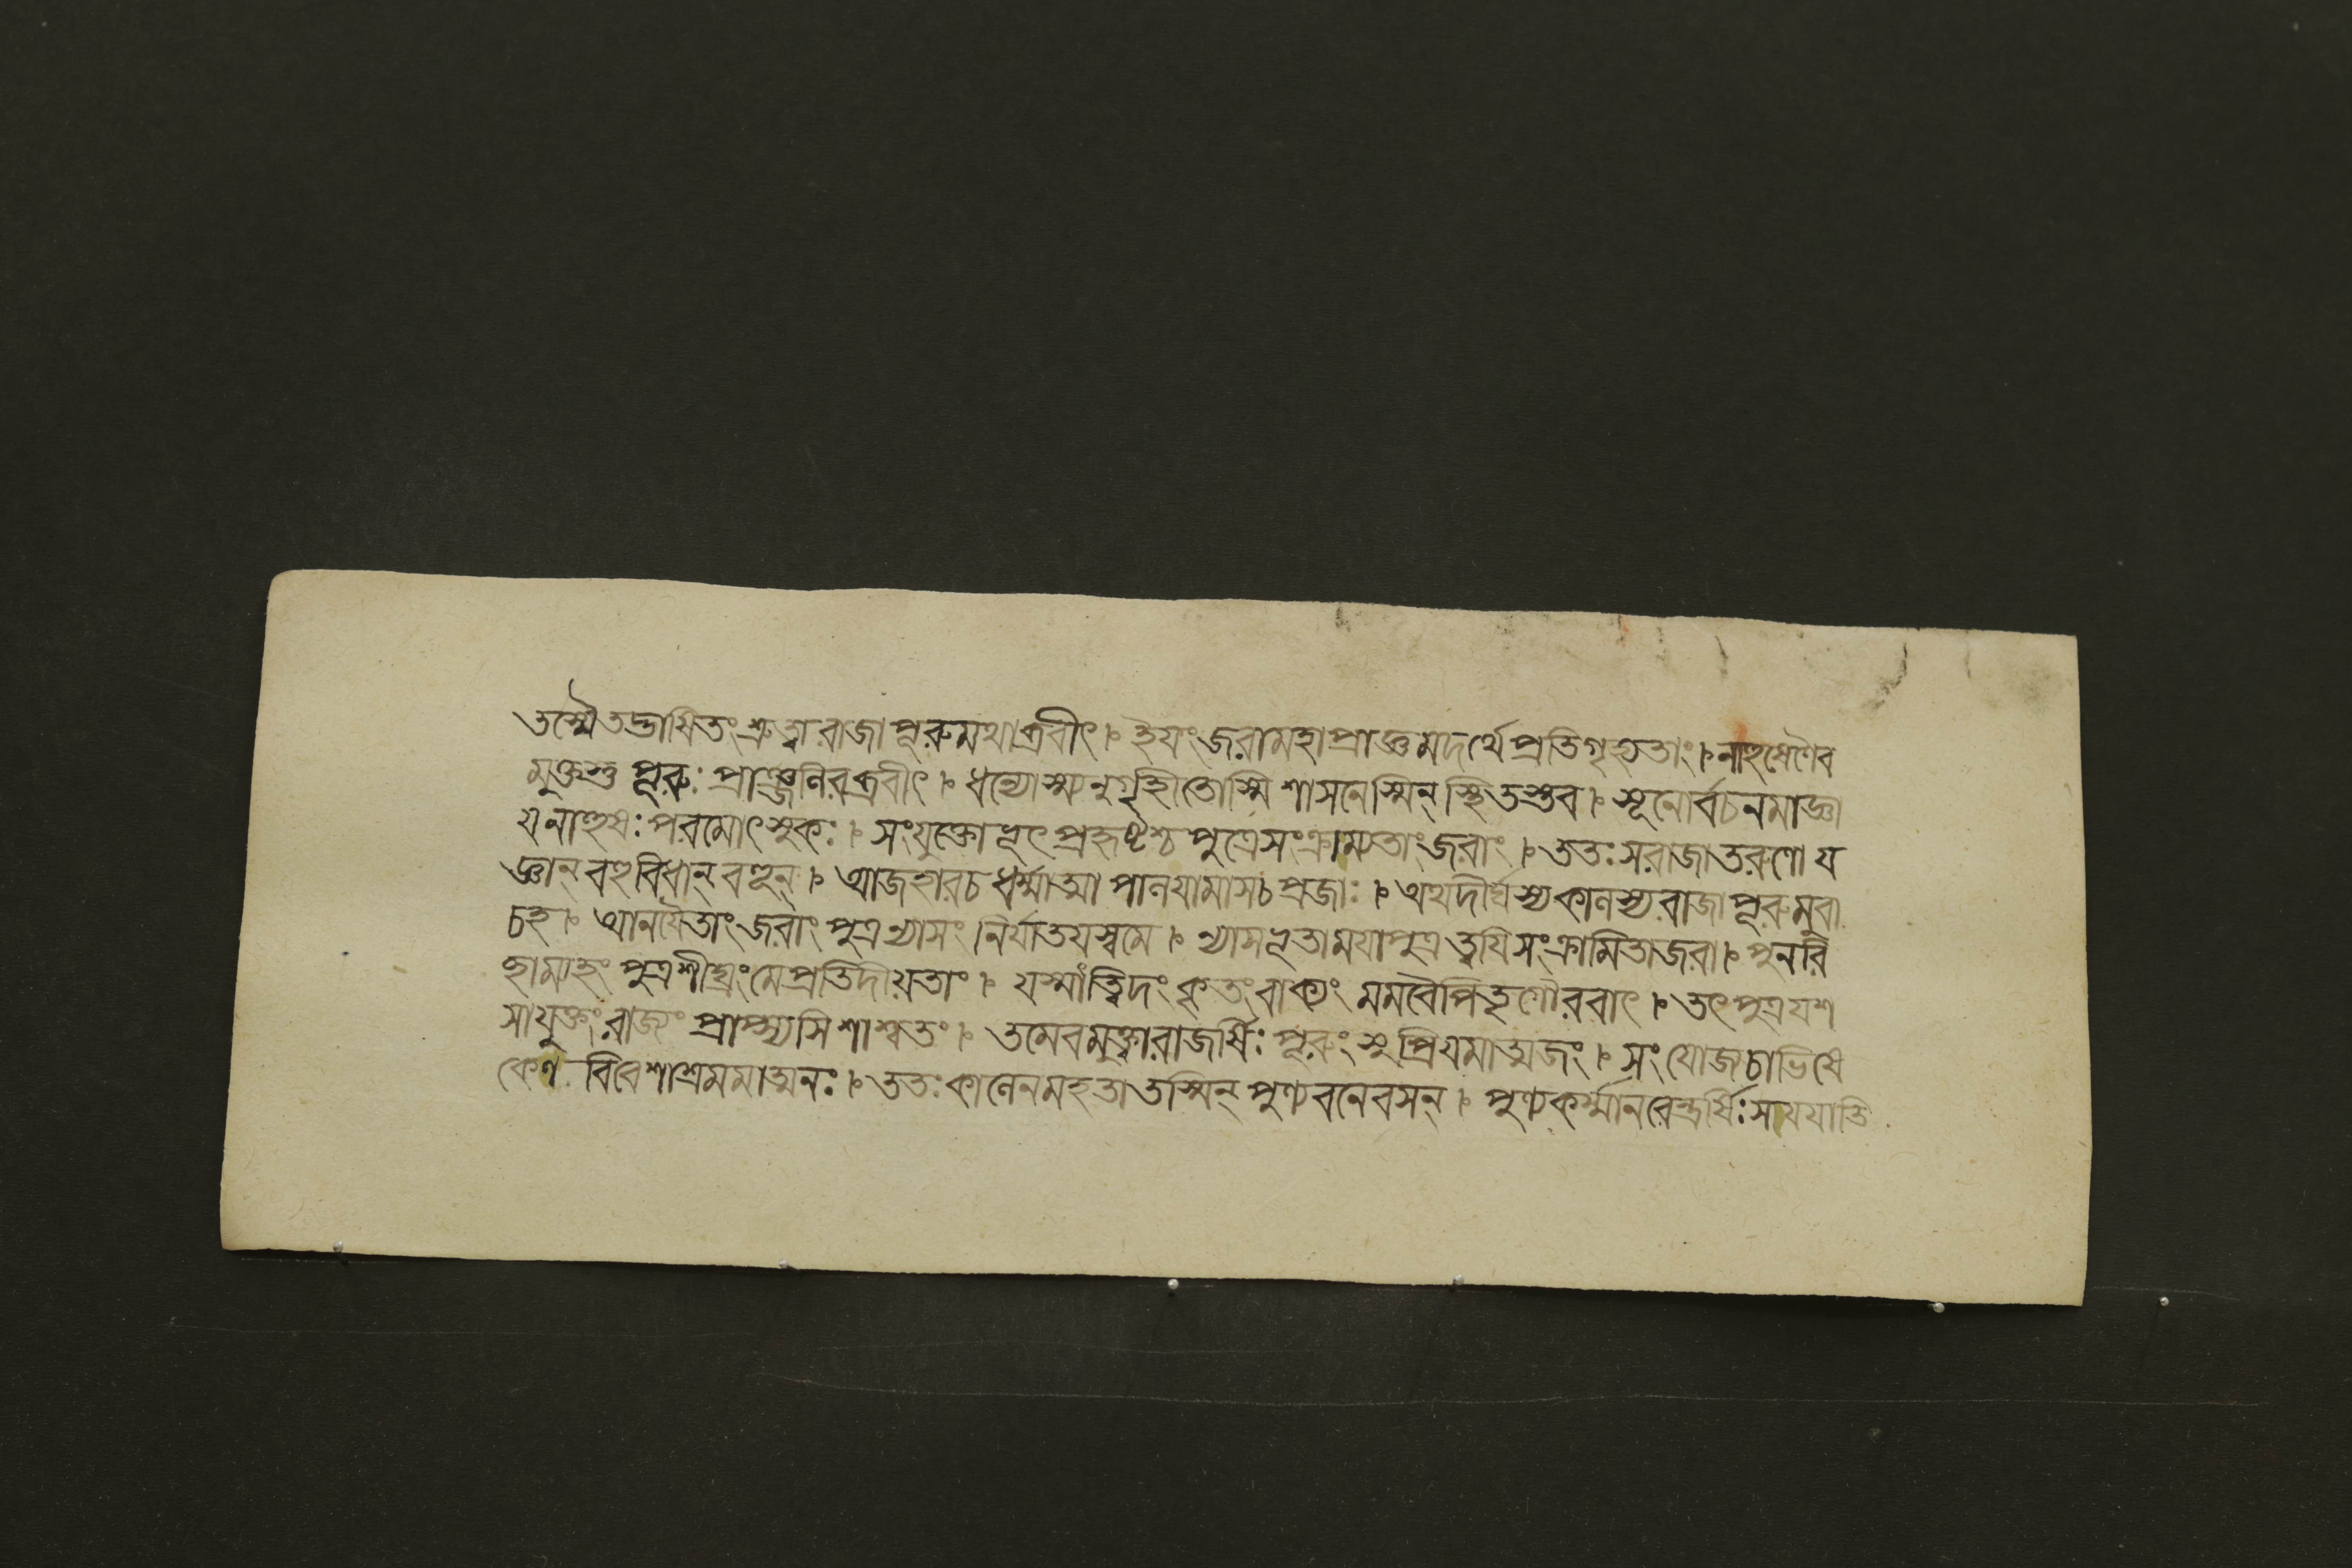 তস্মৈতদ্ভাষিতং শ্রুত্বা রাজা পূরুমথাব্রবীৎ । ইয়ং জরামহাপ্রাজ্ঞমদর্থে প্রতিগৃহ্যতাং । নাহুষেণৈব
মুক্তস্তু পূরুঃ প্রাঞ্জলিরব্রবীৎ । ধন্যোস্ম্যনুগৃহীতোস্মি শাসনেস্মিন্ স্থিতস্তব । শূনোর্বচনমাজ্ঞা
যনাহুষঃ পরমোৎসুকঃ । সংযুক্তোভূৎ প্রহৃষ্টশ্চ পুত্রেসংক্রাম্যতাং জরাং । ততঃ সরাজাতরুণো য
জ্ঞান্ বহুবিধান্ বহূন্ । আজহারচ ধর্ম্মাত্মা পালয়ামাসচ প্রজাঃ । অথদীর্ঘস্যকালস্যরাজা পূরুমুবা
চহ । আনয়ৈতাং জরাং পুত্র ন্যাসং নির্যাতয়স্বমে । ন্যাসভূতাময়াপুত্র ত্বয়িসংক্রামিতাজরা । পুনরি
হাম্যহং পুত্রশীঘ্রং মেপ্রতিদীয়তাং । যস্মাত্ত্বিদং কৃতং বাক্যং মমবৈপিতৃগৌরবাৎ । তৎ পুত্রযশ
সাযুক্তং রাজ্যং প্রাপ্স্যসি শাশ্বতং । তমেবমুক্ত্বারাজর্ষিঃ পূরুং সুপ্রিয়মাত্মজং । সংযোজ্যচাভিষে
কেণ বিবেশাশ্রমমাত্মনঃ । ততঃ কালেনমহতাতস্মিন্ পুণ্যবনেবসন্ । পুণ্যকর্ম্মানরেন্দ্রর্ষিঃ সযযাতি